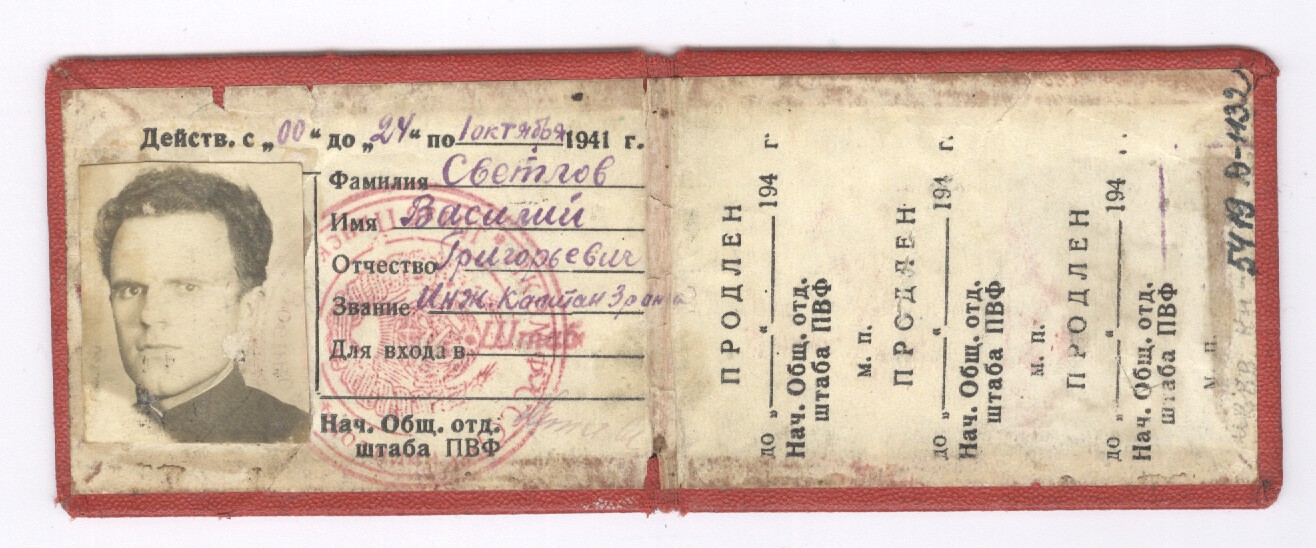 Действ. с „00“ до „24“ по 1 октября 1941 г.
Фамилия Светлов
Имя Василий
Отчество Григорьевич
Звание Инж. Капитан 3 ранга
Для входа в Штаб
Нач. Общ. отд.
штаба ПВФ
ПРОДЛЕН
до „ “ 194 г.
Нач. Общ. отд.
штаба ПВФ
м. п.
ПРОДЛЕН
до „ “ 194 г.
Нач. Общ. отд.
штаба ПВФ
м. п.
ПРОДЛЕН
до „ “ 194 .
Нач. Общ. отд.
штаба ПВФ
м. п.
5419 D-1132